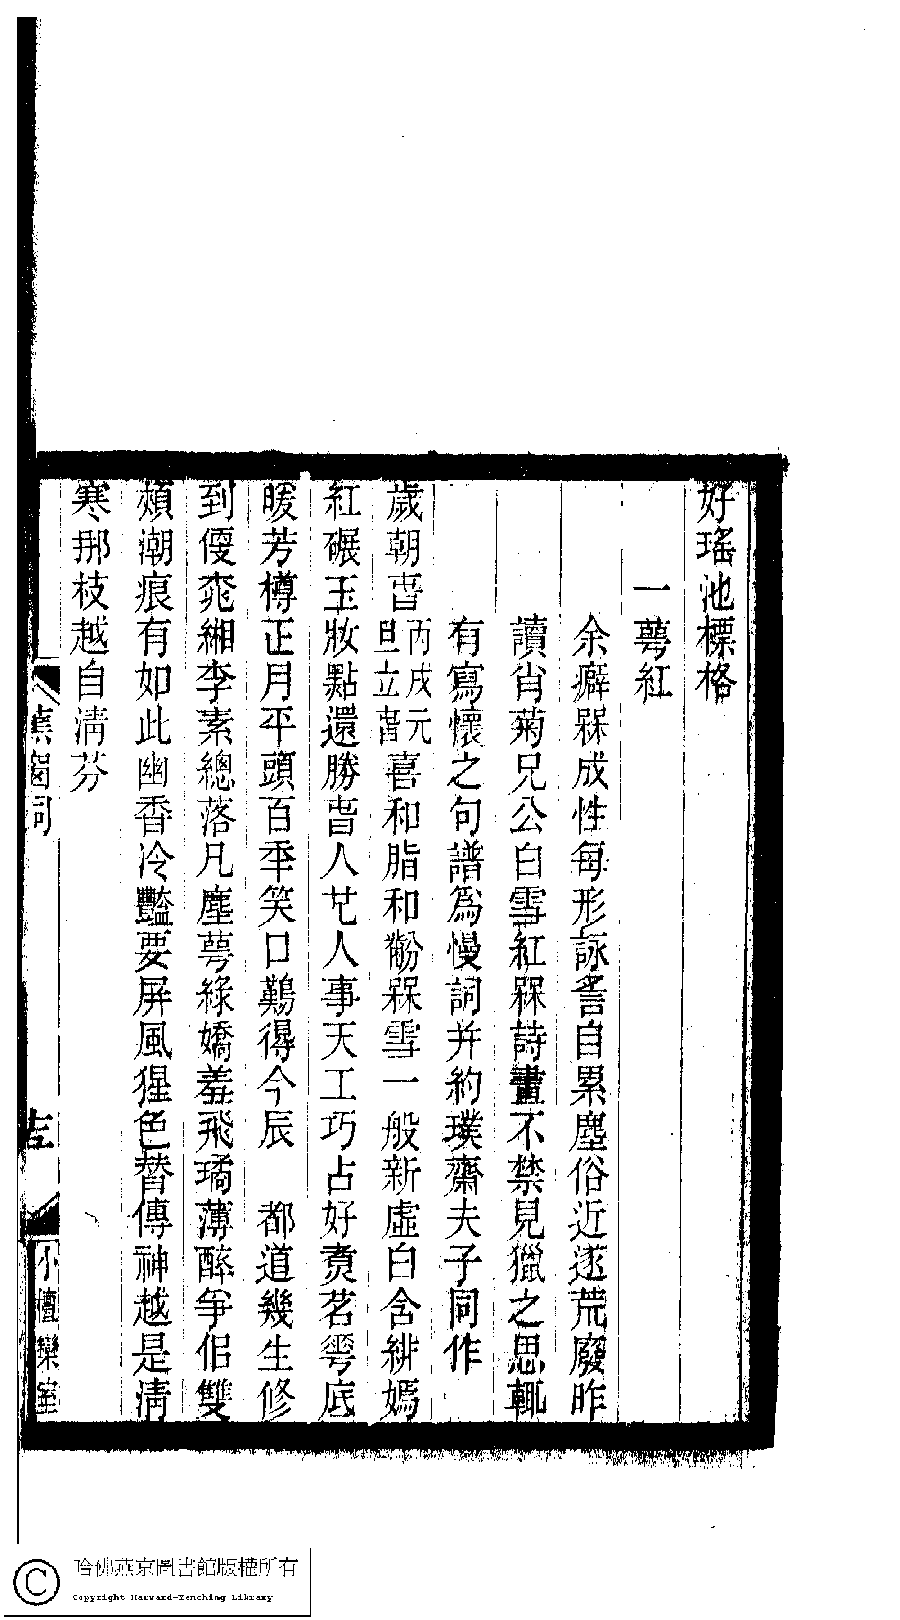 好瑤池標格
一萼紅
余癖槑成性每形詠𠹛自累塵俗近逐荒廢昨
讀肖菊兄公白雪紅槑詩畫不禁見獵之思輒
有寫懷之句譜爲慢詞并約璞齋夫子同作
歲朝旾丙戌元旦立旾喜和脂和黺槑雪一般新虛白含緋嫣
紅碾玉妝點還勝旾人芲人事天工巧占好𤋎茗雩底
暖芳樽正月平頭百秊笑口鷬得今辰　都道幾生修
到便夭緗李素總落凡塵萼綠嬌羞飛璚薄醉爭侶雙
頰潮痕有如此幽香冷豔要屏風猩色替傳神越是淸
寒那枝越自淸芬
蕉窗詞
小檀欒室
哈佛燕京圖書館版權所有
Copyright Harvard-Yenching Library